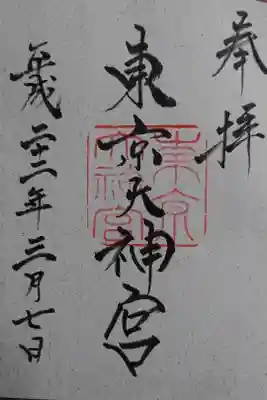 奉拝
東京大神宮
平成二十二年三月七日
東京
大神宮